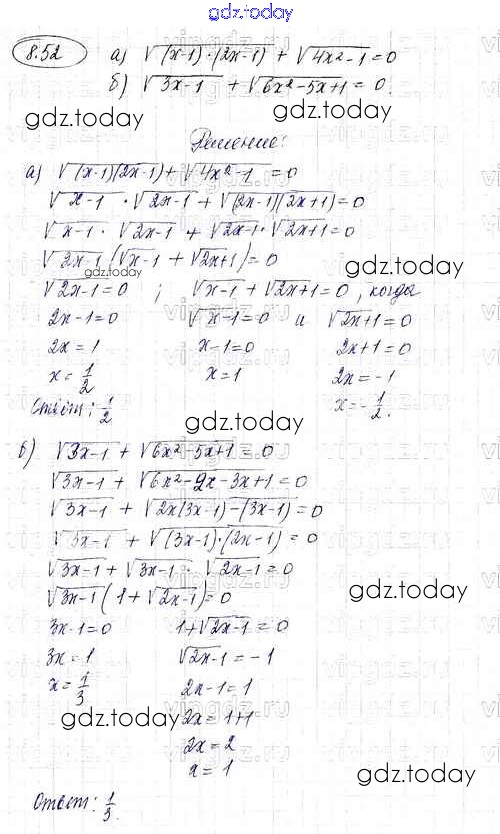 gdz.today
8.52 а) √(x-1)·(2x-1) + √4x²-1 = 0
б) √3x-1 + √6x²-5x+1 = 0.
gdz.today gdz.today
Решение:
а) √(x-1)(2x-1) + √4x²-1 = 0
√x-1 · √2x-1 + √(2x-1)(2x+1) = 0
√x-1 · √2x-1 + √2x-1 · √2x+1 = 0
√2x-1 (√x-1 + √2x+1) = 0
gdz.today gdz.today
√2x-1 = 0 ; √x-1 + √2x+1 = 0, когда
2x-1=0 √x-1=0 и √2x+1=0
2x=1 x-1=0 2x+1=0
x=1/2 x=1 2x=-1
Ответ: 1/2 x=-1/2.
gdz.today
б) √3x-1 + √6x²-5x+1 = 0
√3x-1 + √6x²-2x-3x+1 = 0
√3x-1 + √2x(3x-1)-(3x-1) = 0
√3x-1 + √(3x-1)·(2x-1) = 0
√3x-1 + √3x-1 · √2x-1 = 0
√3x-1 (1+√2x-1) = 0
gdz.today
3x-1=0 1+√2x-1 = 0
3x=1 √2x-1 = -1
x=1/3 2x-1=1
gdz.today
2x=1+1
2x=2
x=1
gdz.today
Ответ: 1/3.